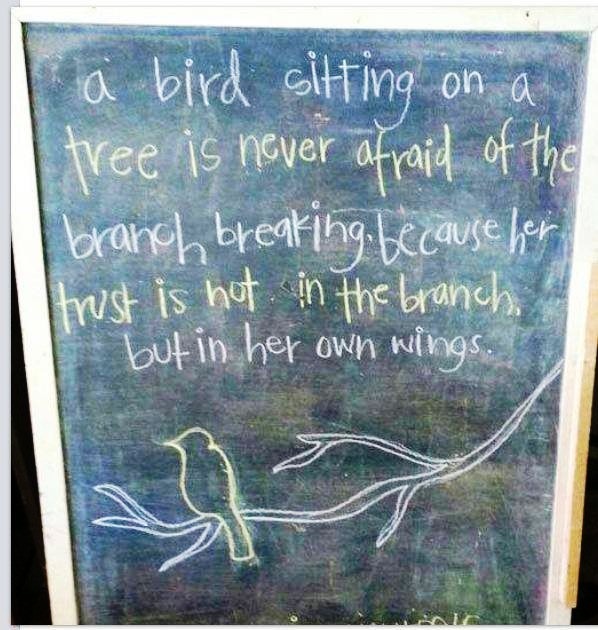 a bird sitting on a
tree is never afraid of the
branch breaking, because her
trust is not in the branch,
but in her own wings.